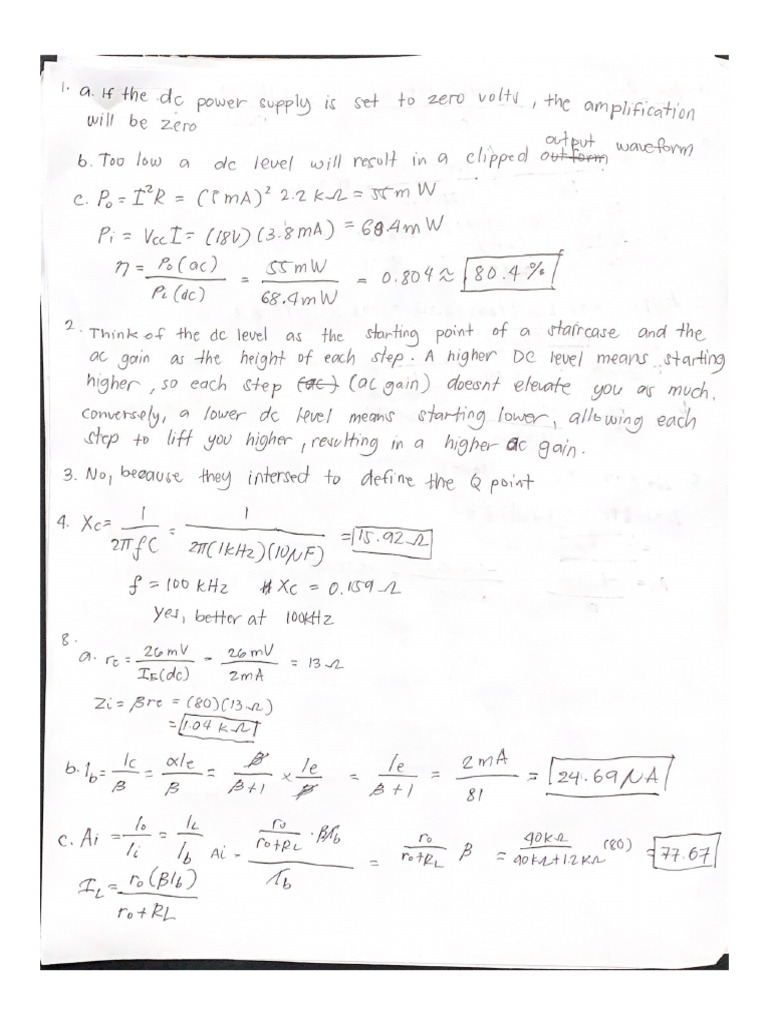 1. a. If the dc power supply is set to zero volts, the amplification
will be zero
b. Too low a dc level will result in a clipped output outform waveform
c. Po = I²R = (5 mA)² 2.2 kΩ = 55 m W
Pi = Vcc I = (18V)(3.8mA) = 68.4mW
η = Po(ac) / Pi(dc) = 55mW / 68.4mW = 0.804 ≈ 80.4%
2. Think of the dc level as the starting point of a staircase and the
ac gain as the height of each step. A higher DC level means starting
higher, so each step (ac) (ac gain) doesnt elevate you as much.
conversely, a lower dc level means starting lower, allowing each
step to lift you higher, resulting in a higher ac gain.
3. No, because they intersed to define the Q point
4. Xc = 1 / 2πfC = 1 / 2π(1kHz)(10μF) = 15.92 Ω
f = 100 kHz Xc = 0.159 Ω
Yes, better at 100kHz
8.
a. re = 26mV / IE(dc) - 26mV / 2mA = 13 Ω
Zi = βre = (80)(13Ω)
= 1.04 kΩ
b. Ib = Ic / β = αIe / β = β / β+1 × Ie / β = Ie / β+1 = 2mA / 81 = 24.69 μA
c. Ai = Io / Ii = IL / Ib Ai - ro / ro+RL · βIb / Ib = ro / ro+RL β = 40kΩ / 40kΩ+1.2kΩ (80) = 77.67
IL = ro(βIb) / ro+RL